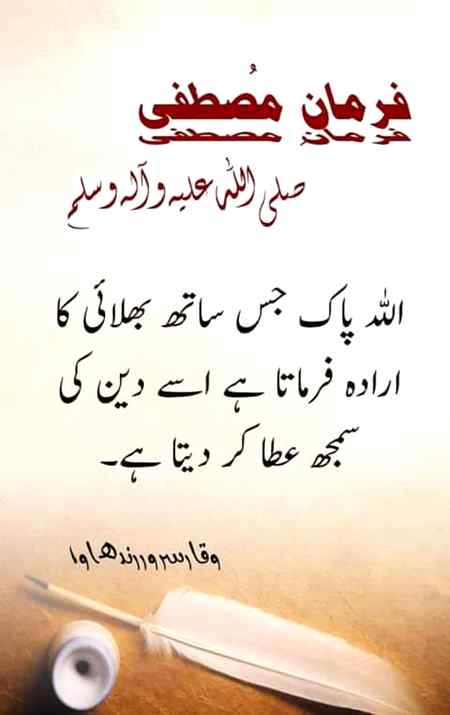 فرمانِ مُصطفی
صلی اللہ علیہ وآلہ وسلم
اللہ پاک جس ساتھ بھلائی کا
ارادہ فرماتا ہے اسے دین کی
سمجھ عطا کر دیتا ہے۔
وقار سرور رندھاوا